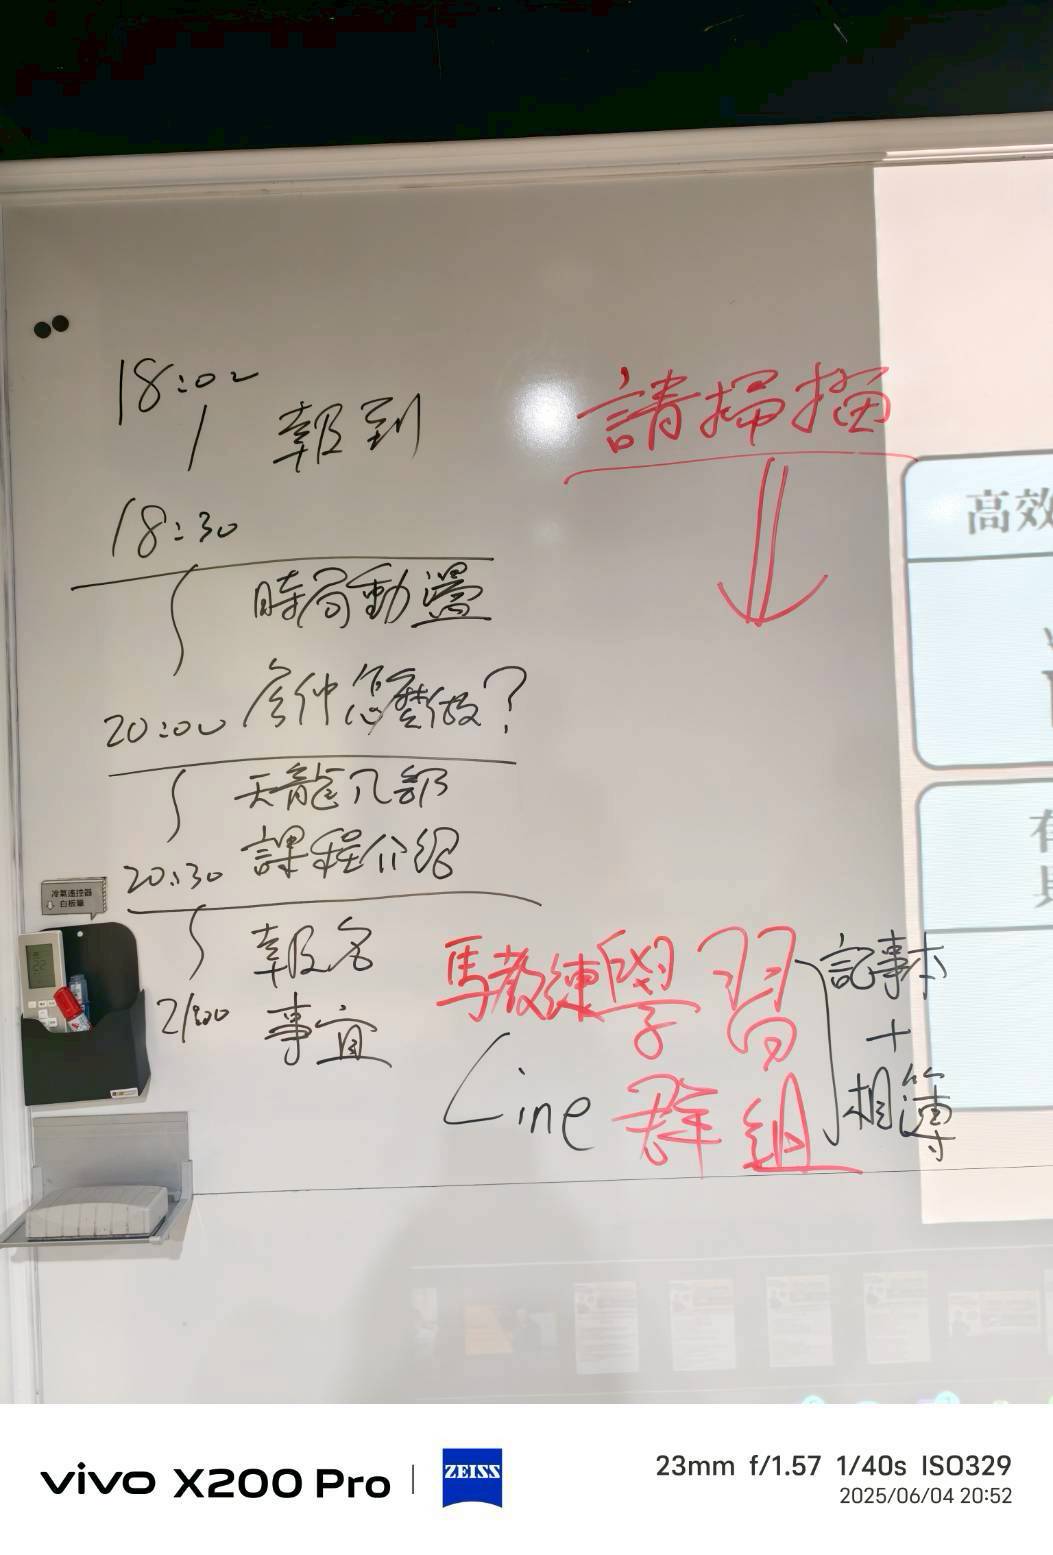 18:00
報到
18:30
時局動盪
房仲怎麼做?
20:00
天龍八部
課程介紹
20:30
報名
事宜
21:00
請掃描
馬教練學習
Line 群組
記事本
+
相簿
高效
冷氣遙控器
白板筆
vivo X200 Pro
ZEISS
23mm f/1.57 1/40s ISO329
2025/06/04 20:52